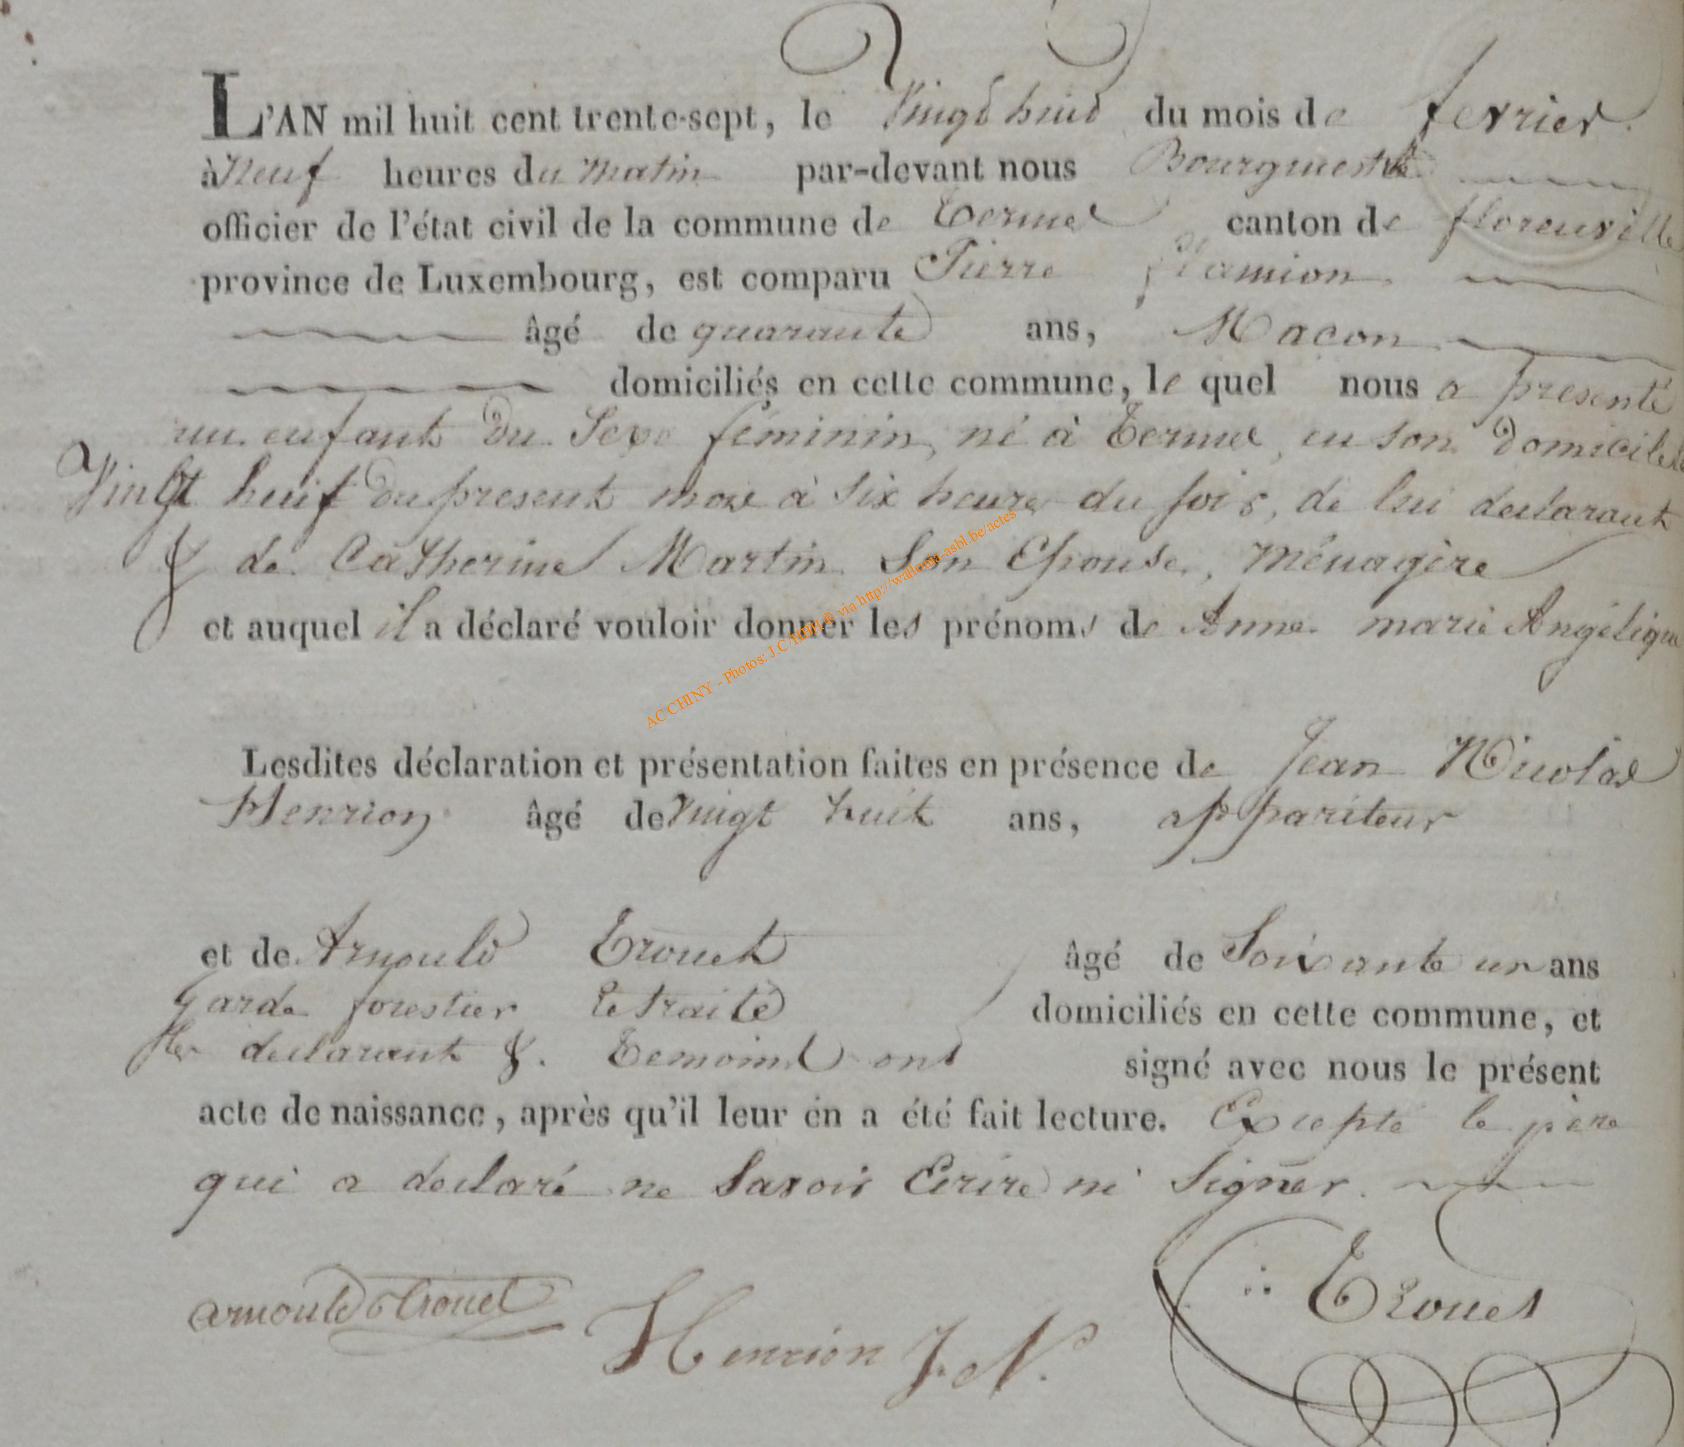 L'AN mil huit cent trente-sept, le Vingt huit du mois de fevrier
à Neuf heures du Matin par-devant nous Bourgmestre
officier de l'état civil de la commune de Termes canton de florenville
province de Luxembourg, est comparu Pierre flamion
âgé de quarante ans, Macon
domiciliés en cette commune, le quel nous a presenté
un enfant du Sexe féminin, né à Termes, en son Domicile
Vingt huit du present mois à six heures du soir, de lui declarant
& de Catherine Martin Son Epouse, Ménagère
et auquel il a déclaré vouloir donner les prénoms de Anne marie Angélique
ACCHINY - Photos: J.C via http://wallonia-asbl.be/actes
Lesdites déclaration et présentation faites en présence de Jean Nicolas
Henrion âgé de vingt huit ans, appariteur
et de Arnould Trouet âgé de Soixante un ans
Garde forestier retraité domiciliés en cette commune, et
les declarant &. Temoins ont signé avec nous le présent
acte de naissance, après qu'il leur en a été fait lecture. Excepté le père
qui a declaré ne Savoir Ecrire ni Signer.
arnould trouet Henrion J. N. Trouet